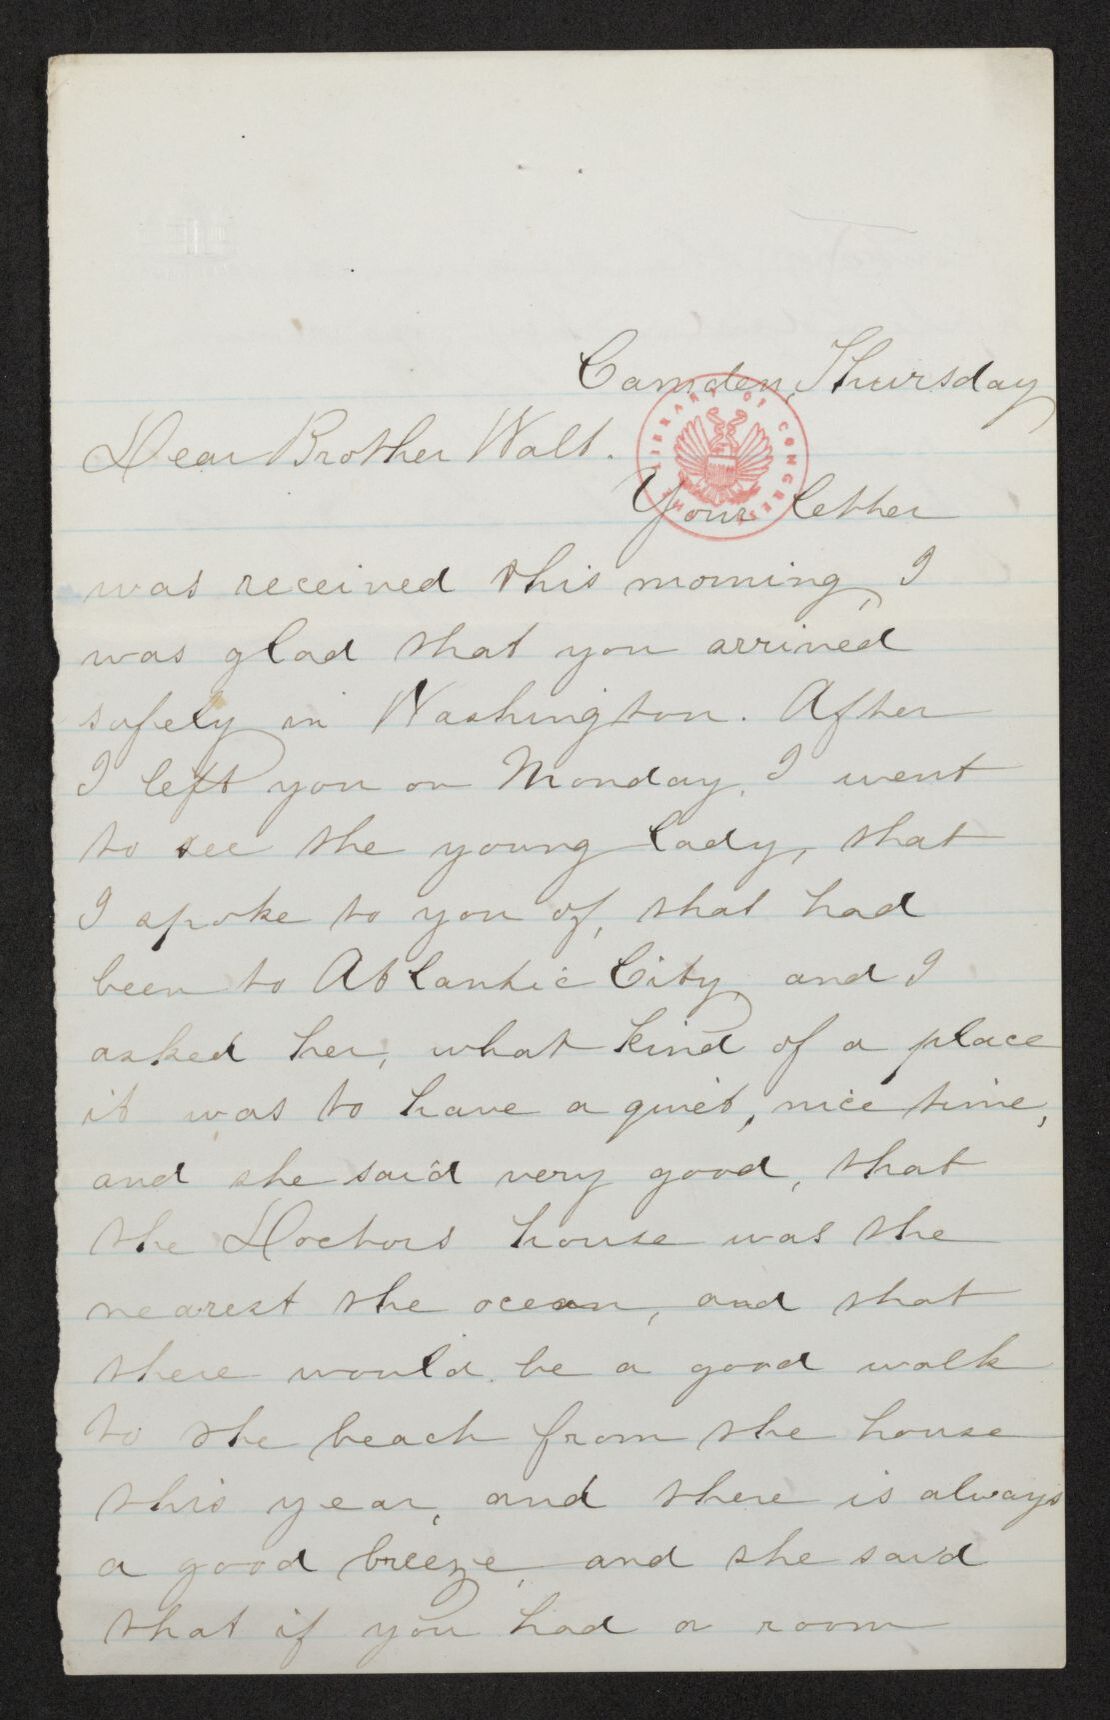 Camden, Thursday
Dear Brother Walt.
Your letter
was received this morning, I
was glad that you arrived
safely in Washington. After
I left you on Monday, I went
to see the young lady, that
I spoke to you of, that had
been to Atlantic City, and I
asked her, what kind of a place
it was to have a quiet, nice time,
and she said very good, that
the Doctors house was the
nearest the ocean, and that
there would be a good walk
to the beach from the house
this year, and there is always
a good breeze, and she said
that if you had a room
LIBRARY OF CONGRESS